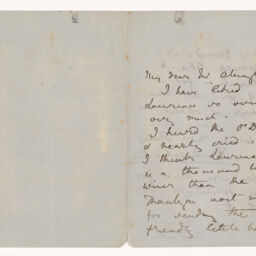 My dear Mr
I have liked
Lawrence so very
very much.
I heard the
& nearly cried
I think Lawrence
is a thousand
than the
Thank you most
for sending the
friendly little